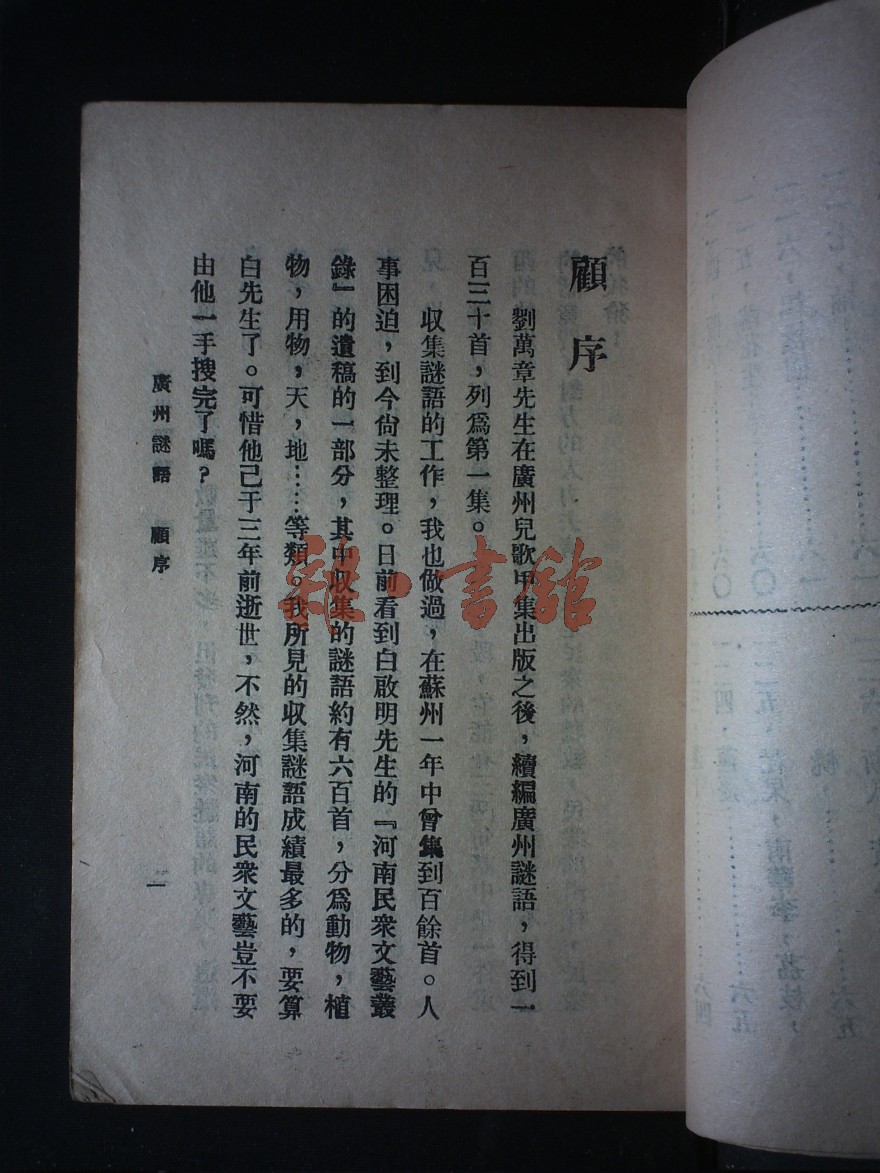 顧序
劉萬章先生在廣州兒歌甲集出版之後，續編廣州謎語，得到一
百三十首，列爲第一集。
收集謎語的工作，我也做過，在蘇州一年中曾集到百餘首。人
事困迫，到今尙未整理。日前看到白啟明先生的『河南民衆文藝叢
錄』的遺稿的一部分，其中收集的謎語約有六百首，分爲動物，植
物，用物，天，地……等類。我所見的收集謎語成績最多的，要算
白先生了。可惜他已于三年前逝世，不然，河南的民衆文藝豈不要
由他一手搜完了嗎？
廣州謎語 顧序
一
書館